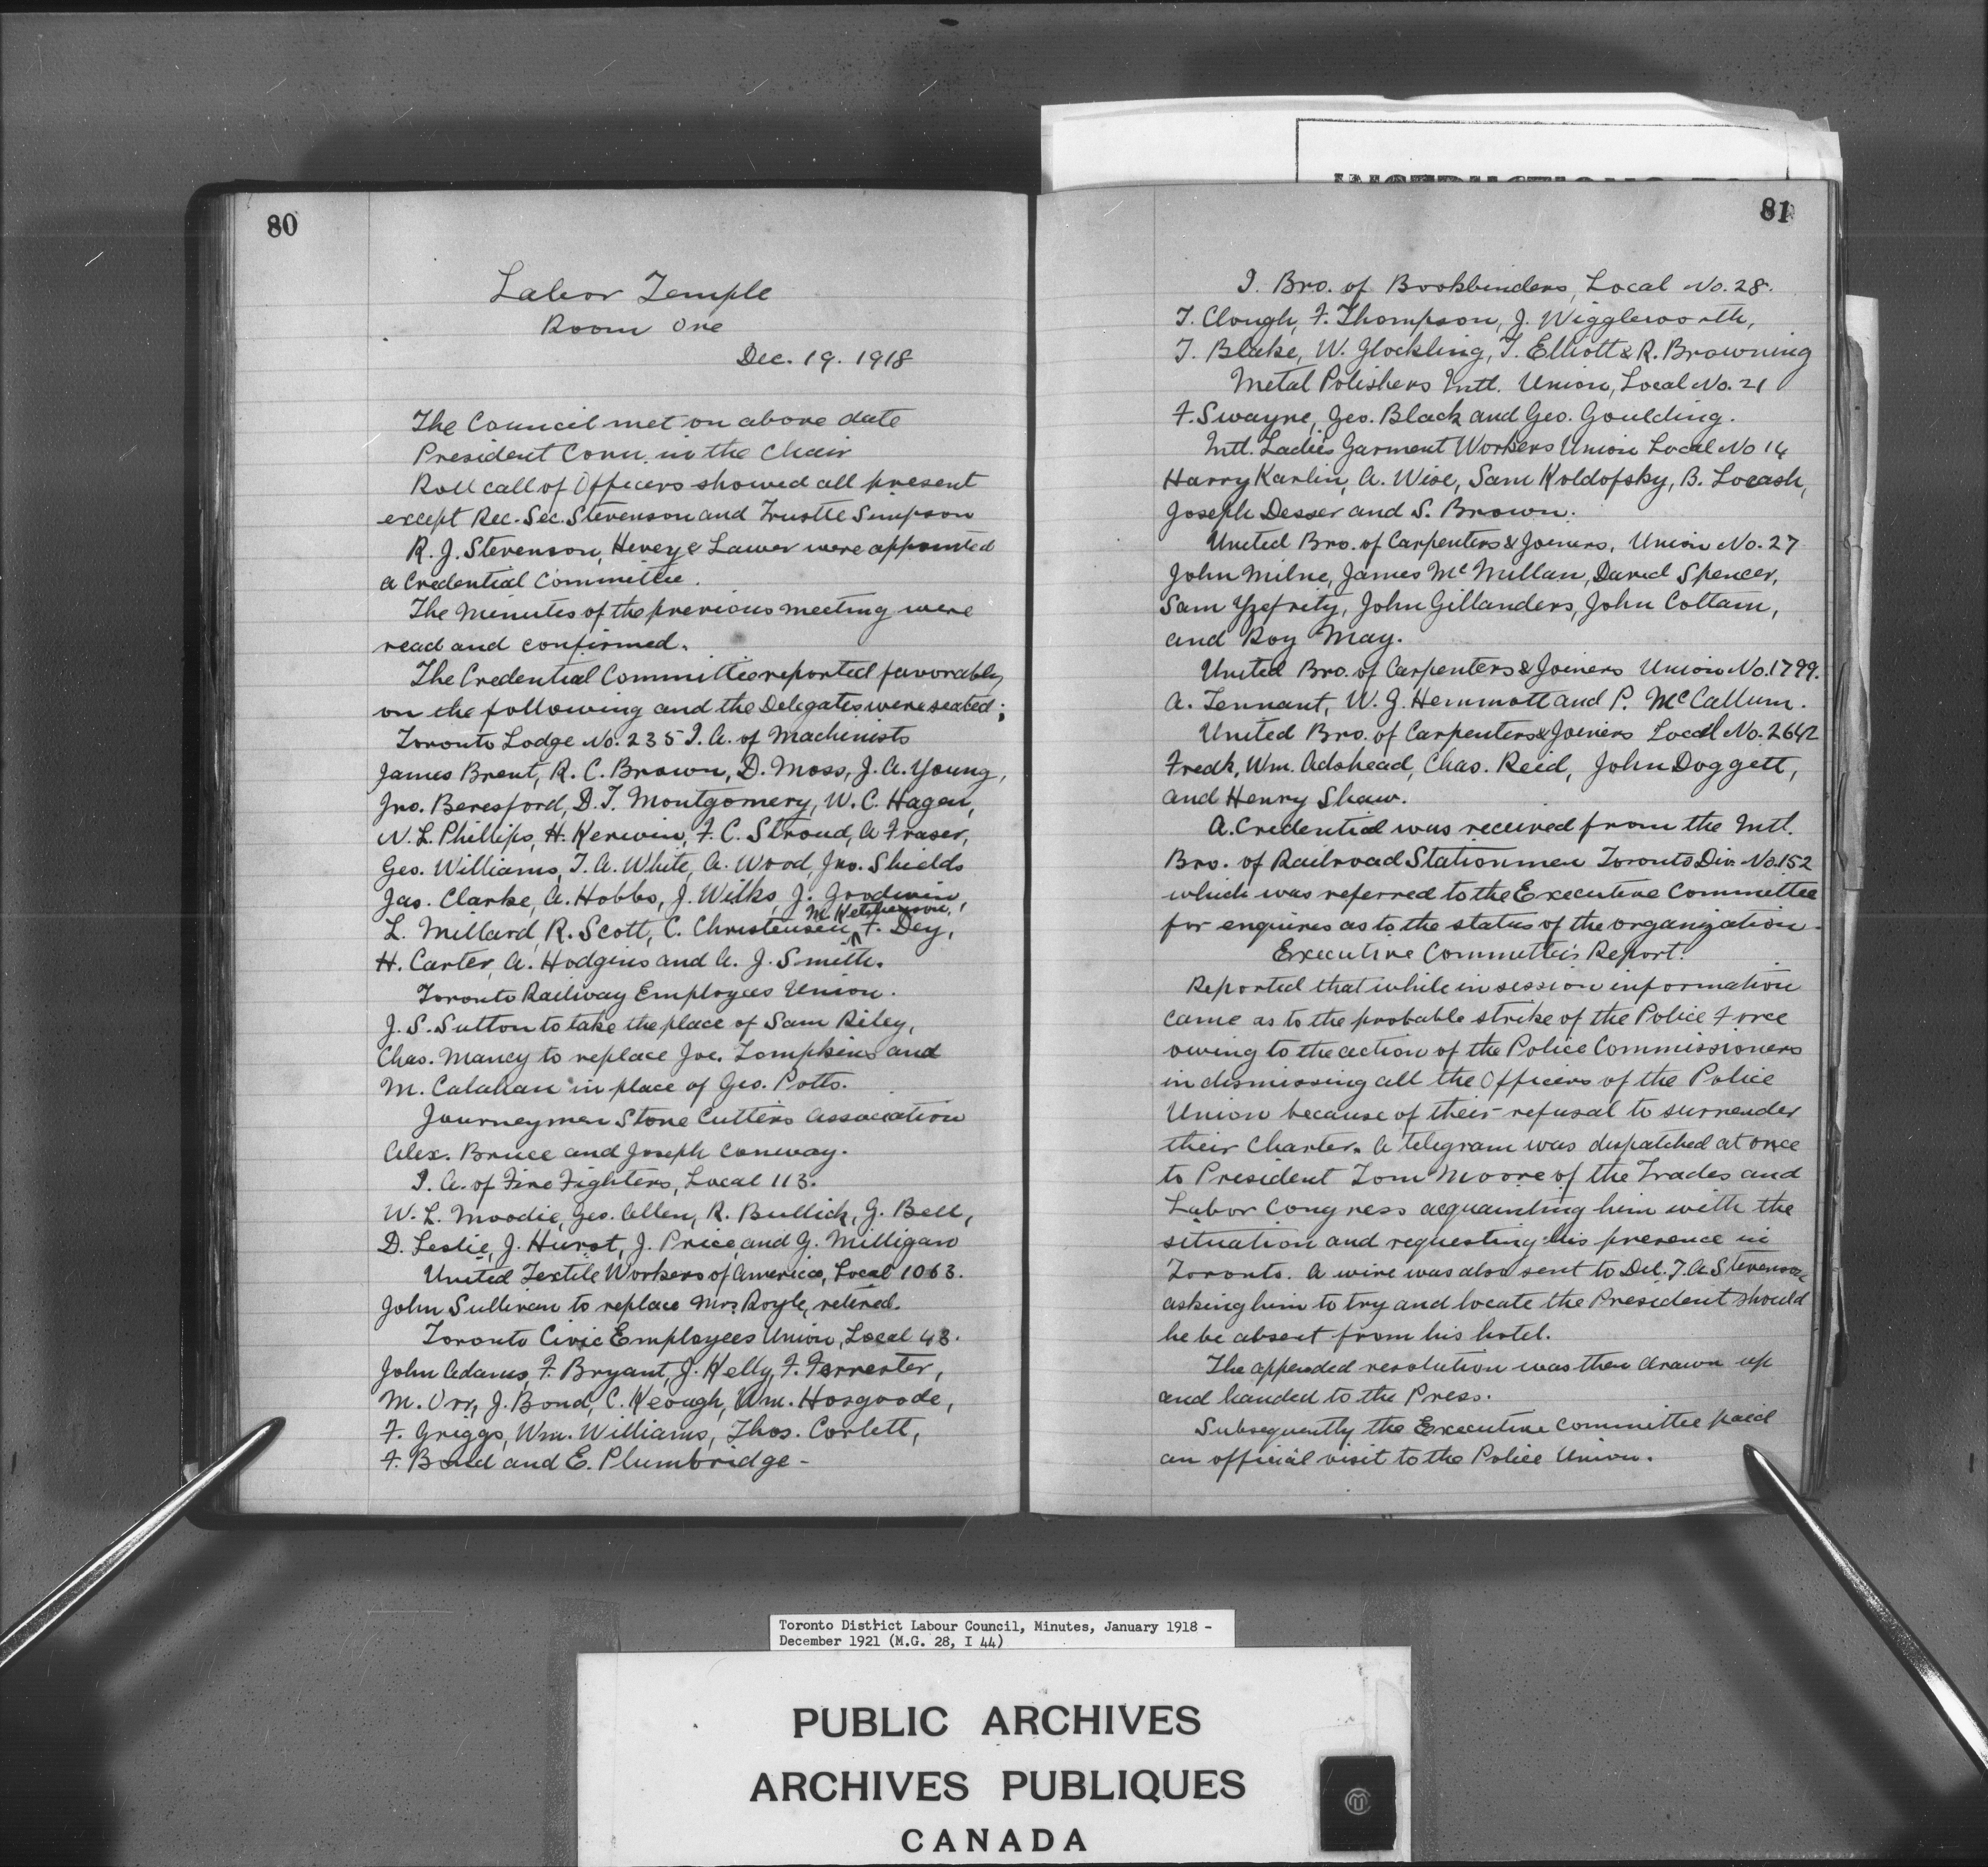 80
Labor Temple
Room One
Dec. 19. 1918
The Council met on above date
President Conn. in the Chair
Roll call of Officers showed all present
except Rec. Sec. Stevenson and Trustee Simpson
R. J. Stevenson, Hevey & Lawer were appointed
a Credential Committee.
The Minutes of the previous meeting were
read and confirmed.
The Credential Committee reported favorably
on the following and the Delegates were seated;
Toronto Lodge No. 235 I. A. of Machinists
James Brent, R. C. Brown, D. Moss, J. A. Young,
Jno. Beresford, D. T. Montgomery, W. C. Hagen,
N. L. Phillips, H. Kerwin, F. C. Stroud, A Fraser,
Geo. Williams, T. A. White, A. Wood, Jno. Shields
Jas. Clarke, A. Hobbs, J. Wilks, J. Goodwin,
M. Ketcheson,
L. Millard, R. Scott, C. Christensen, F. Dey,
H. Carter, A. Hodgins and A. J. Smith.
Toronto Railway Employees Union.
J. S. Sutton to take the place of Sam Riley,
Chas. Mancy to replace Joe. Tompkins and
M. Calahan in place of Geo. Potts.
Journeymen Stone Cutters Association
Alex. Bruce and Joseph Conway.
I. A. of Fire Fighters, Local 113.
W. L. Moodie, Geo. Allen, R. Bullick, G. Bell,
D. Leslie, J. Hurst, J. Price and G. Milligan
United Textile Workers of America, Local 1063.
John Sullivan to replace Mrs. Royle, retired.
Toronto Civic Employees Union, Local 43.
John Adams, F. Bryant, J. Kelly, F. Forrester,
M. Orr, J. Bond, C. Keough, Wm. Hosgoode,
F. Griggs, Wm. Williams, Thos. Corlett,
F. Bond and E. Plumbridge -
INSTRUCTIONS TO
81
I. Bro. of Bookbinders, Local No. 28.
T. Clough, F. Thompson, J. Wiggleworth,
T. Blake, W. Glockling, T. Elliott & R. Browning
Metal Polishers Intl. Union, Local No. 21
F. Swayne, Geo. Black and Geo. Goulding.
Intl. Ladies Garment Workers Union Local No 14
Harry Karlin, A. Wise, Sam Koldofsky, B. Locash,
Joseph Desser and S. Brown.
United Bro. of Carpenters & Joiners, Union No. 27
John Milne, James McMillan, David Spencer,
Sam Yzefrity, John Gillanders, John Cottam,
and Roy May.
United Bro. of Carpenters & Joiners Union No. 1799.
A. Tennant, W. J. Hemmott and P. McCallum.
United Bro. of Carpenters & Joiners Local No. 2642
Fredk, Wm. Adshead, Chas. Reed, John Doggett,
and Henry Shaw.
A. Credential was received from the Intl.
Bro. of Railroad Stationmen Toronto Div. No. 152
which was referred to the Executive Committee
for enquires as to the status of the organization.
Executive Committee's Report.
Reported that while in session information
came as to the probable strike of the Police Force
owing to the action of the Police Commissioners
in dismissing all the Officers of the Police
Union because of their refusal to surrender
their Charter. A telegram was dispatched at once
to President Tom Moore of the Trades and
Labor Congress acquainting him with the
situation and requesting his presence in
Toronto. A wire was also sent to Del. T. A Stevenson
asking him to try and locate the President should
he be absent from his hotel.
The appended resolution was then drawn up
and handed to the Press.
Subsequently the Executive Committee paid
an official visit to the Police Union.
Toronto District Labour Council, Minutes, January 1918 -
December 1921 (M.G. 28, I 44)
PUBLIC ARCHIVES
ARCHIVES PUBLIQUES
CANADA